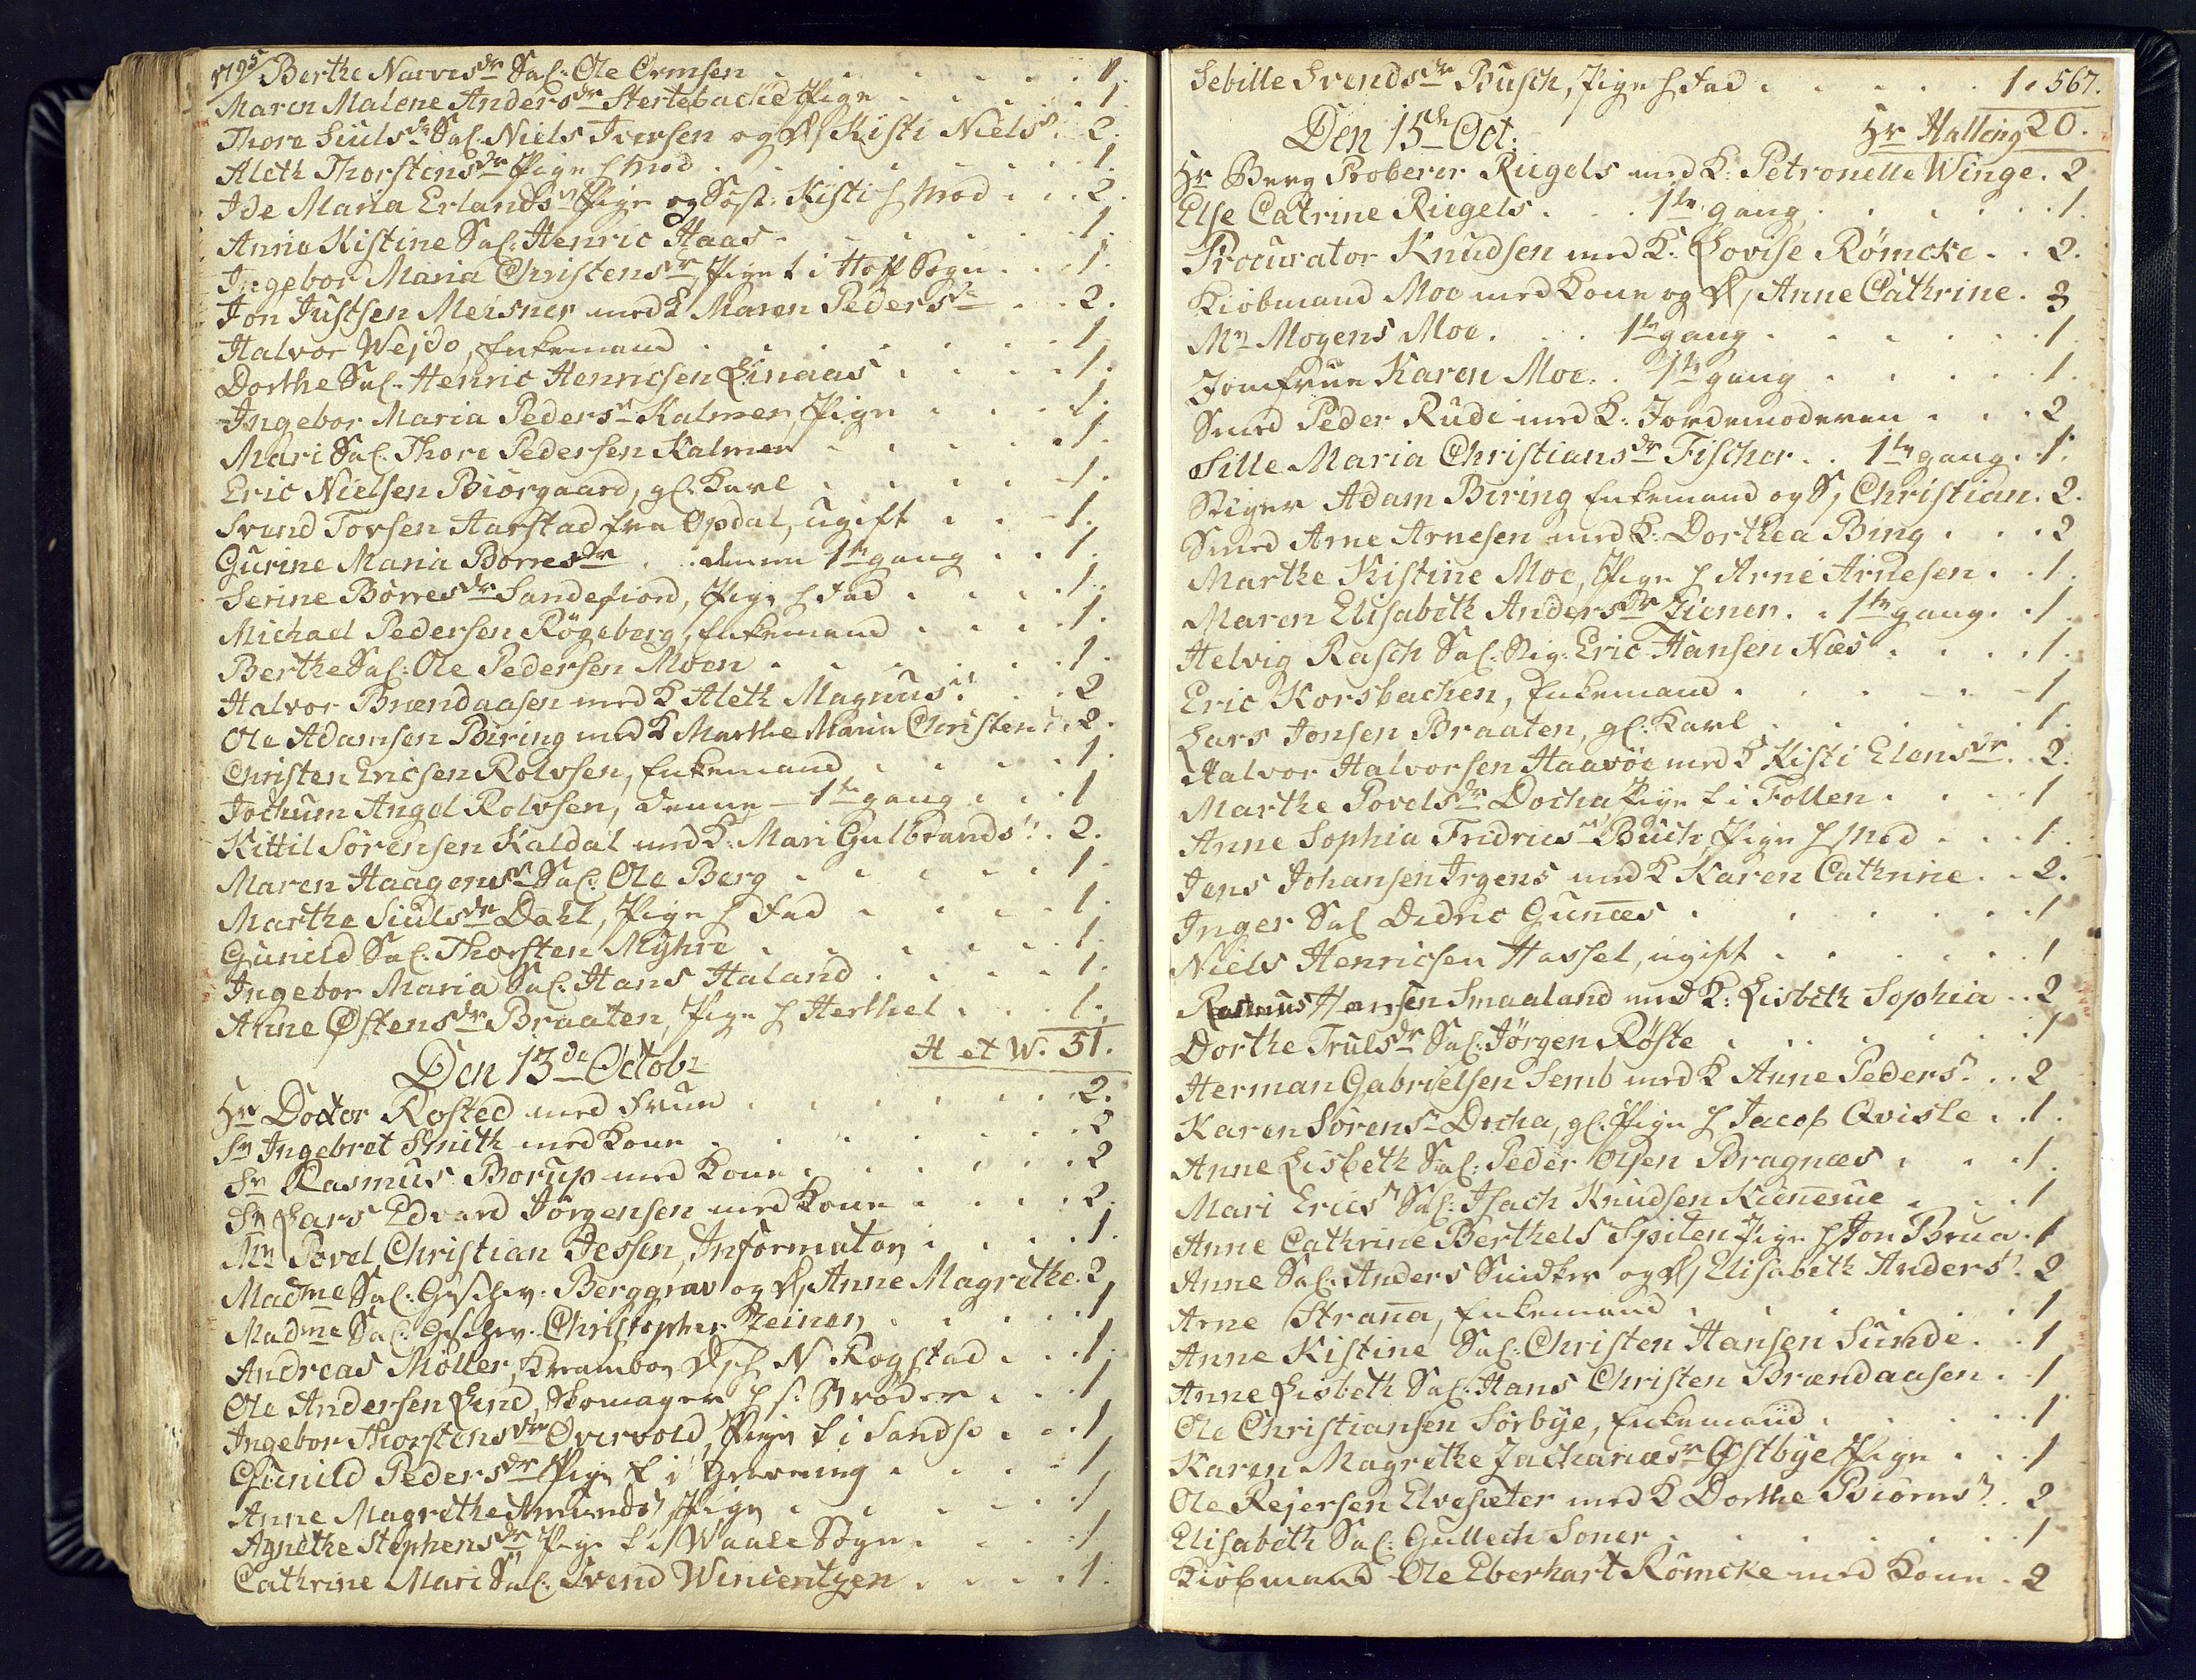 1795 Berthe Narvesdr Sal: Ole Ormsen . . . 1.
Maren Malene Andersdr Stertebacke Pige . . . 1.
Thore Siulsdr Sal. Niels Iversen og D/ Kisti Nielsdr. 2.
Aleth Thorstensdr Pige h Mod . . . 1.
Ide Maria Erlandsdr Pige og Søst: Kisti h Mod . . . 2.
Anna Kistine Sal: Henric Haas . . . 1.
Ingebor Maria Christensdr, Pige t i Hoff Sogn . . . 1.
Jon Justsen Meisner med K Maren Pedersdr . . . 2.
Halvor Wejdo, Enkemand . . . 1.
Dorthe Sal. Henric Henricsen Linaas . . . 1.
Ingebor Maria Pedersdr Kalmer, Pige . . . 1.
Mari Sal. Thore Pedersen Kalmer . . . 1.
Eric Nielsen Biørgaard, gl. Karl . . . 1.
Svend Torsen Aarstad fra Opdal, ugift . . . 1.
Gurine Maria Borresdr . . denne 1te gang . . 1.
Serine Børresdr Sandefiord, Pige h Fad . . . 1.
Michael Pedersen Røgeberg, Enkemand . . . 1.
Berthe Sal: Ole Pedersen Moen . . . 1.
Halvor Brændaasen med K Aleth Magnusdr . . 2
Ole Adamsen Biring med K Marthe Maria Christensdr. 2.
Christen Ericsen Rolvsen, Enkemand . . . 1.
Jochum Angel Rolvsen, denne – 1te gang . . . 1
Kittil Sørensen Kaldal med K. Mari Gulbrandsdr . 2.
Maren Haagensdr Sal: Ole Berg . . . 1.
Marthe Siulsdr Dahl, Pige h Fad . . . 1.
Gunild Sal. Thorsten Myhre . . . 1.
Ingebor Maria Sal: Hans Haland . . . 1.
Anne Østensdr Braaten, Pige h Herthel . . . 1.
Den 13de Octobr H et W. 51.
Hr Doctor Rosted med Frue . . . 2.
Sr Ingebret Smith med Kone . . . 2
Sr Rasmus Borup med Kone . . . 2
Sr Lars Edvard Jørgensen med Kone . . . 2.
Mr Povel Christian Jessen, Informator . . . 1.
Madme Sal: Geschw. Berggrav og D/ Anne Magrethe. 2
Madme Sal: Geschw. Christopher Zeiner . . . 1
Andreas Møller, Krambod h N Kogstad . . . 1.
Ole Andersen Lind, Skomager h s: Broder . . . 1
Ingebor Thorstensdr Overvold, Pige t i Sandsv . . . 1
Gunild Pedersdr Pige t i Gevening . . . 1
Anne Magrethe Amundsdr, Pige . . . 1
Agnethe Stephensdr Pige t i Waale Sogn . . . 1
Cathrine Mari Sal. Svend Wincentzen . . . 1.
Sebille Svendsdr Busch, Pige h Fad . . . 1. 567.
Den 15de Oct: Hr Halling 20.
Hr Berg Proberer Riegels med K: Petronelle Winge. 2
Else Catrine Riegels . . . 1te gang . . . 1.
Procurator Knudsen med K: Lovise Rømcke . . 2.
Kiøbmand Moe med Kone og D/ Anne Cathrine. 3
Mr Mogens Moe . . . 1te gang . . . 1.
Jomfrue Karen Moe . . 1te gang . . . 1.
Smed Peder Rude med K: Jordemoderen . . . 2
Sille Maria Christiansdr Fischer . . 1te gang . . 1.
Stiger Adam Biring Enkemand og S/ Christian. 2.
Smed Arne Arnesen med K. Dorthea Bing . . . 2
Marthe Kistine Moe, Pige h Arne Arnesen . . 1.
Maren Elisabeth Andersdr Ziener . . 1te gang . . 1
Helvig Rasch Sal. Stig: Eric Hansen Næs . . . 1.
Eric Korsbachen, Enkemand . . . 1
Lars Jonsen Braaten, gl: Karl . . . 1.
Halvor Halvorsen Haavøe med K Kisti Elensdr . . 2.
Marthe Povelsdr Docha Pige t i Follen . . . 1
Anne Sophia Fridricsdr Buch, Pige h Mod . . . 1.
Jens Johansen Irgens med K Karen Cathrine . . 2.
Inger Sal Didric Gunæs . . . 1
Niels Henricsen Hassel, ugift . . . 1
Rasmus Hansen Smaaland med K: Lisbeth Sophia . . 2
Dorthe Trulsdr Sal: Jørgen Røste . . . 1
Herman Gabrielsen Semb med K Anne Pedersdr . . 2
Karen Sørensdr Docha, gl. Pige h Jacob Qvisle . . 1.
Anne Lisbeth Sal: Peder Olsen Bragnæs . . . 1.
Mari Ericsdr Sal: Isach Knudsen Kiennerue . . . 1
Anne Cathrine Berthels Spiten Pige h Jon Brua. 1
Anne Sal: Anders Snidker og D/ Elisabeth Andersdr. 2
Arne Stranna, Enkemand . . . 1
Anne Kistine Sal: Christen Hansen Sunde . . 1
Anne Lisbeth Sal: Hans Christen Brændaasen . . 1
Ole Christiansen Sørbye, Enkemand . . . 1
Karen Magrethe Zachariædr Østbye Pige . . . 1
Ole Rejersen Elvesæter med K Dorthe Biørnsdr . . 2
Elisabeth Sal: Gullech Soner . . . 1
Kiøbmand Ole Eberhart Rømcke med Kone . 2